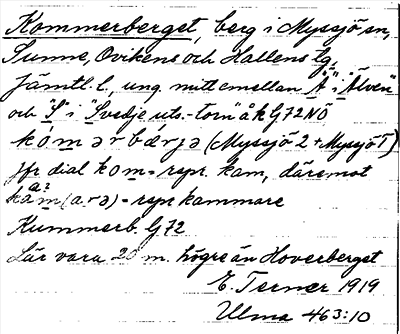 Kommerberget, berg i Myssjö sn,
Sunne, Ovikens och Hallens tg,
Jämtl. l., ung. mitt emellan "Å" i "Älven"
och "S" i "Svedje uts.-torn" å k G 72 NÖ
kómərbærjə (Myssjö 2 + Myssjö T)
Jfr dial kom = rspr. kam, däremot
kam(arə) = rspr kammare
Kummerb. G 72
Lär vara 20 m. högre än Hoverberget
E. Terner 1919
Ulma 463:10